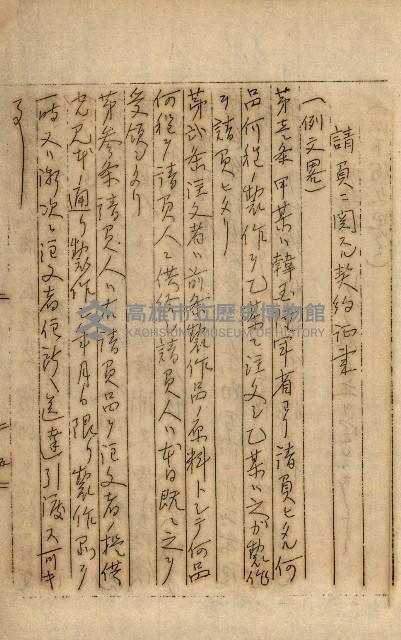 請負ニ関スル契約証書
(一例文畧)
第壱条 甲某ハ 製作者ヨリ請負セル何
品何程ノ製作ヲ乙某ニ注文シ乙某ハ之ガ製作
ヲ請負セタリ
第弐条 注文者ハ前条製作品ノ原料トシテ何品
何程ヲ請負人ニ供給シ請負人ハ本日既ニ之ヲ
受領セリ
第参条 請負人ハ右請負品ヲ注文者ノ提供
見本ノ通リ製作シ 年月日限リ製作
一時又ハ漸次ニ注文者住所ニ送達引渡スベキ
高雄市立歷史博物館
KAOHSIUNG MUSEUM OF HISTORY